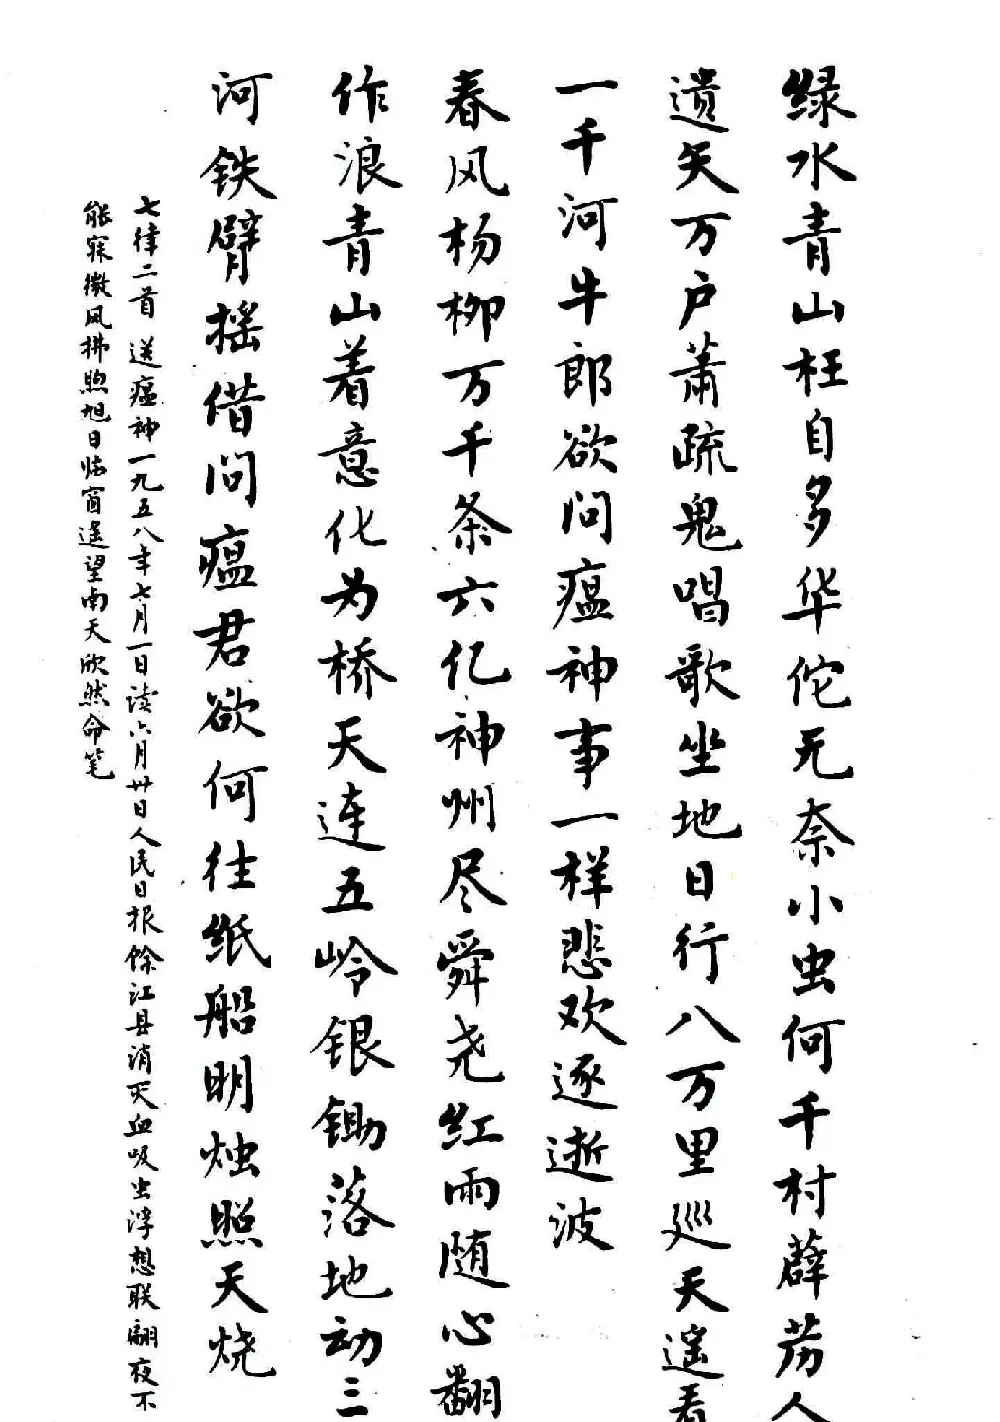 绿水青山枉自多华佗无奈小虫何千村薜荔人
遗矢万户萧疏鬼唱歌坐地日行八万里巡天遥看
一千河牛郎欲问瘟神事一样悲欢逐逝波
春风杨柳万千条六亿神州尽舜尧红雨随心翻
作浪青山着意化为桥天连五岭银锄落地动三
河铁臂摇借问瘟君欲何往纸船明烛照天烧
七律二首 送瘟神一九五八年七月一日读六月卅日人民日报馀江县消灭血吸虫浮想联翩夜不
能寐微风拂煦旭日临窗遥望南天欣然命笔